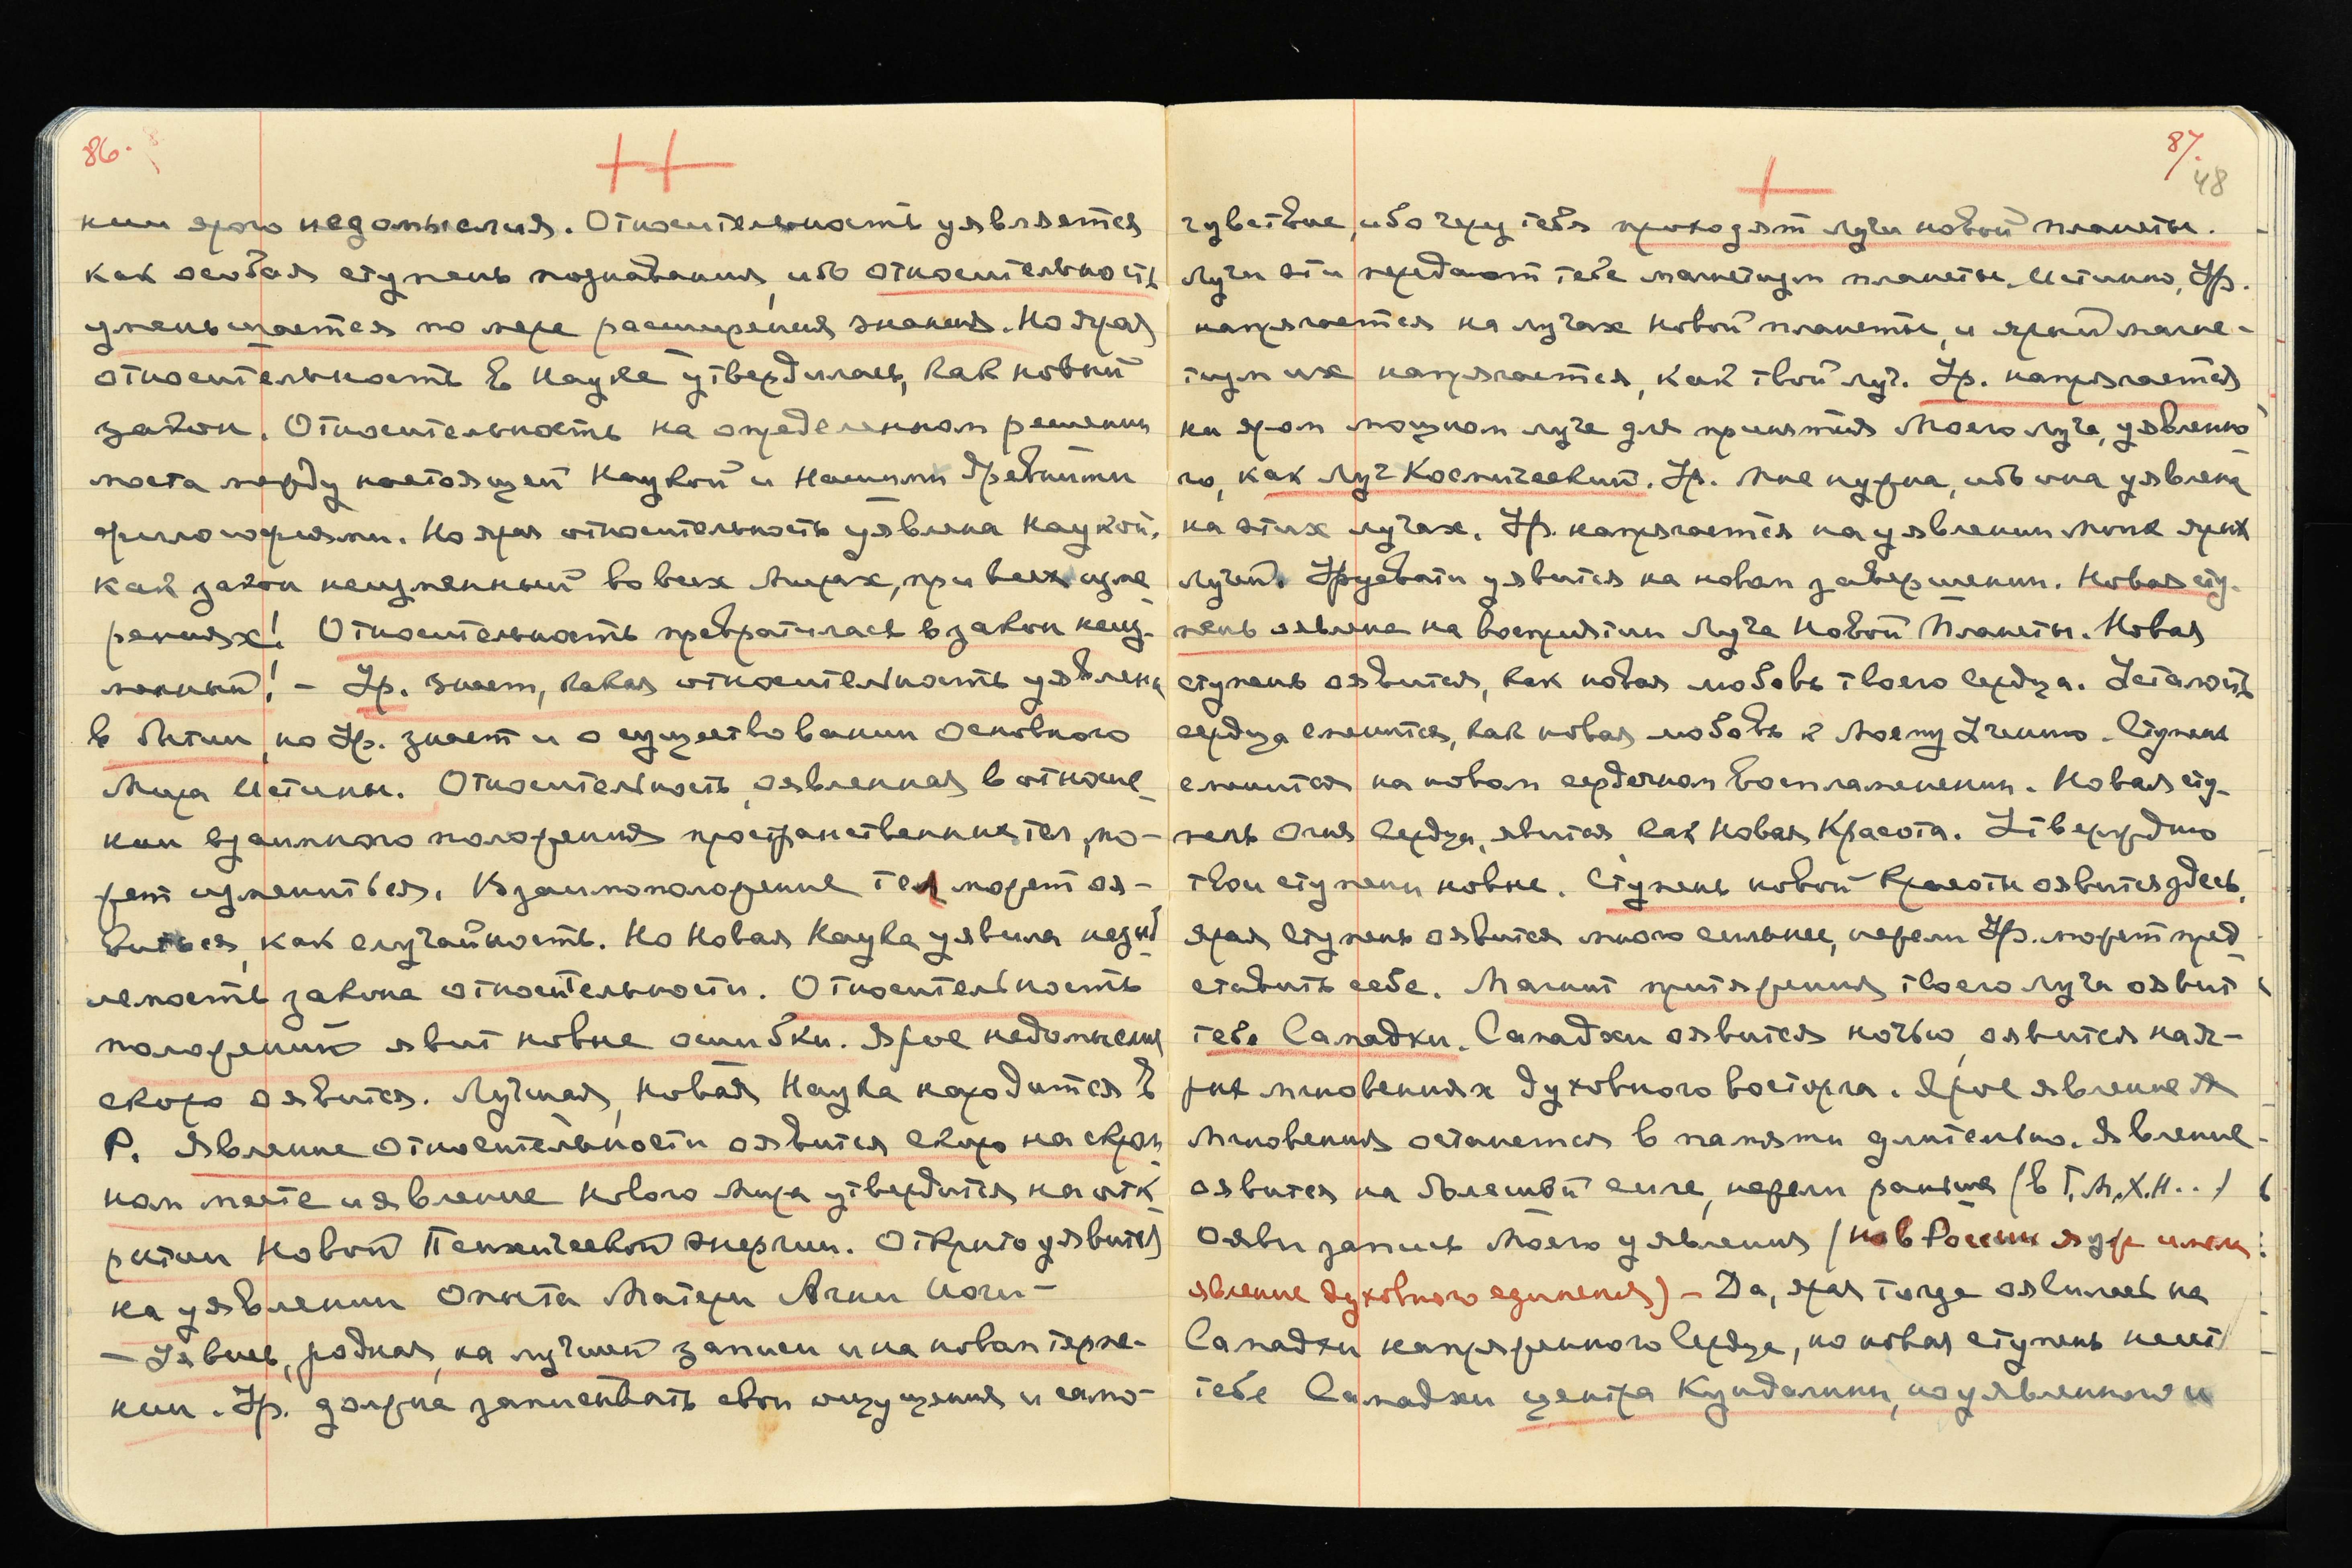 86.
++
нии ярого недомыслия. Относительность уявляется
как особая ступень познавания, ибо относительность
уменьшается по мере расширения знания. Но ярая
относительность в Науке утвердилась, как новый
закон. Относительность на определенном решении
моста между настоящей Наукой и Нашими древними
философиями. Но ярая относительность уявлена Наукой,
как закон неизменный во всех Мирах, при всех изме
рениях! Относительность превратилась в закон неиз-
менный! – Ур. знает, какая относительность уявлена
в Истине, но Ур. знает и о существовании Основного
Мира Истины. Относительность, оявленная в отноше-
нии взаимного положения пространственных тел, мо-
жет измениться. Взаимоположение тел может оя-
виться, как случайность. Но Новая Наука уявила незыб
лемость закона относительности. Относительность
положений явит новые ошибки. Ярое недомыслие
скоро оявится. Лучшая, новая Наука находится в
Р. Явление относительности оявится скоро на скром
ном месте и явление Нового Мира утвердится на отк
рытии Новой Психической энергии. Открыто уявится
на уявлении Опыта Матери Агни Йоги –
– Уявись, родная, на лучшей записи и на новом терпе-
нии. Ур. должна записывать свои ощущения и само-
87.
48
+
чувствие, ибо через тебя проходят лучи новой планеты.
Лучи эти передают тебе магнетизм планеты. Истинно, Ур.
напрягается на лучах Новой планеты, и ярый магне-
тизм их напрягается, как твой луч. Ур. напрягается
на яром мощном луче для принятия Моего луча, уявленно
го, как Луч Космический. Ур. Мне нужна, ибо она уявлена
на этих лучах. Ур. напрягается на уявлении Моих ярых
лучей. Урусвати уявится на новом завершении. Новая сту-
пень оявлена на восприятии Луча Новой Планеты. Новая
ступень оявится, как новая любовь твоего сердца. Усталость
сердца сменится, как новая любовь к Моему Учению. Ступень
сменится на новом сердечном воспламенении. Новая сту-
пень Огня Сердца, явится как Новая Красота. Утверждаю
твои ступени новые. Ступень новой Красоты оявится здесь,
ярая ступень оявится много сильнее, нежели Ур. может пред
ставить себе. Магнит притяжения твоего луча оявит
тебе Самадхи. Самадхи оявится ночью, оявится на яр-
ких мгновениях духовного восторга. Ярое явление
мгновения останется в памяти длительно. Явление
оявится на большей силе, нежели раньше (в Т. М. Х. Н. . . )
Ояви запись Моего уявления (но в России я уже имела
явление духовного единения) – Да, ярая тогда оявилась на
Самадхи напряженного Сердца, но новая ступень несет
тебе Самадхи центра Кундалини, но уявленного и